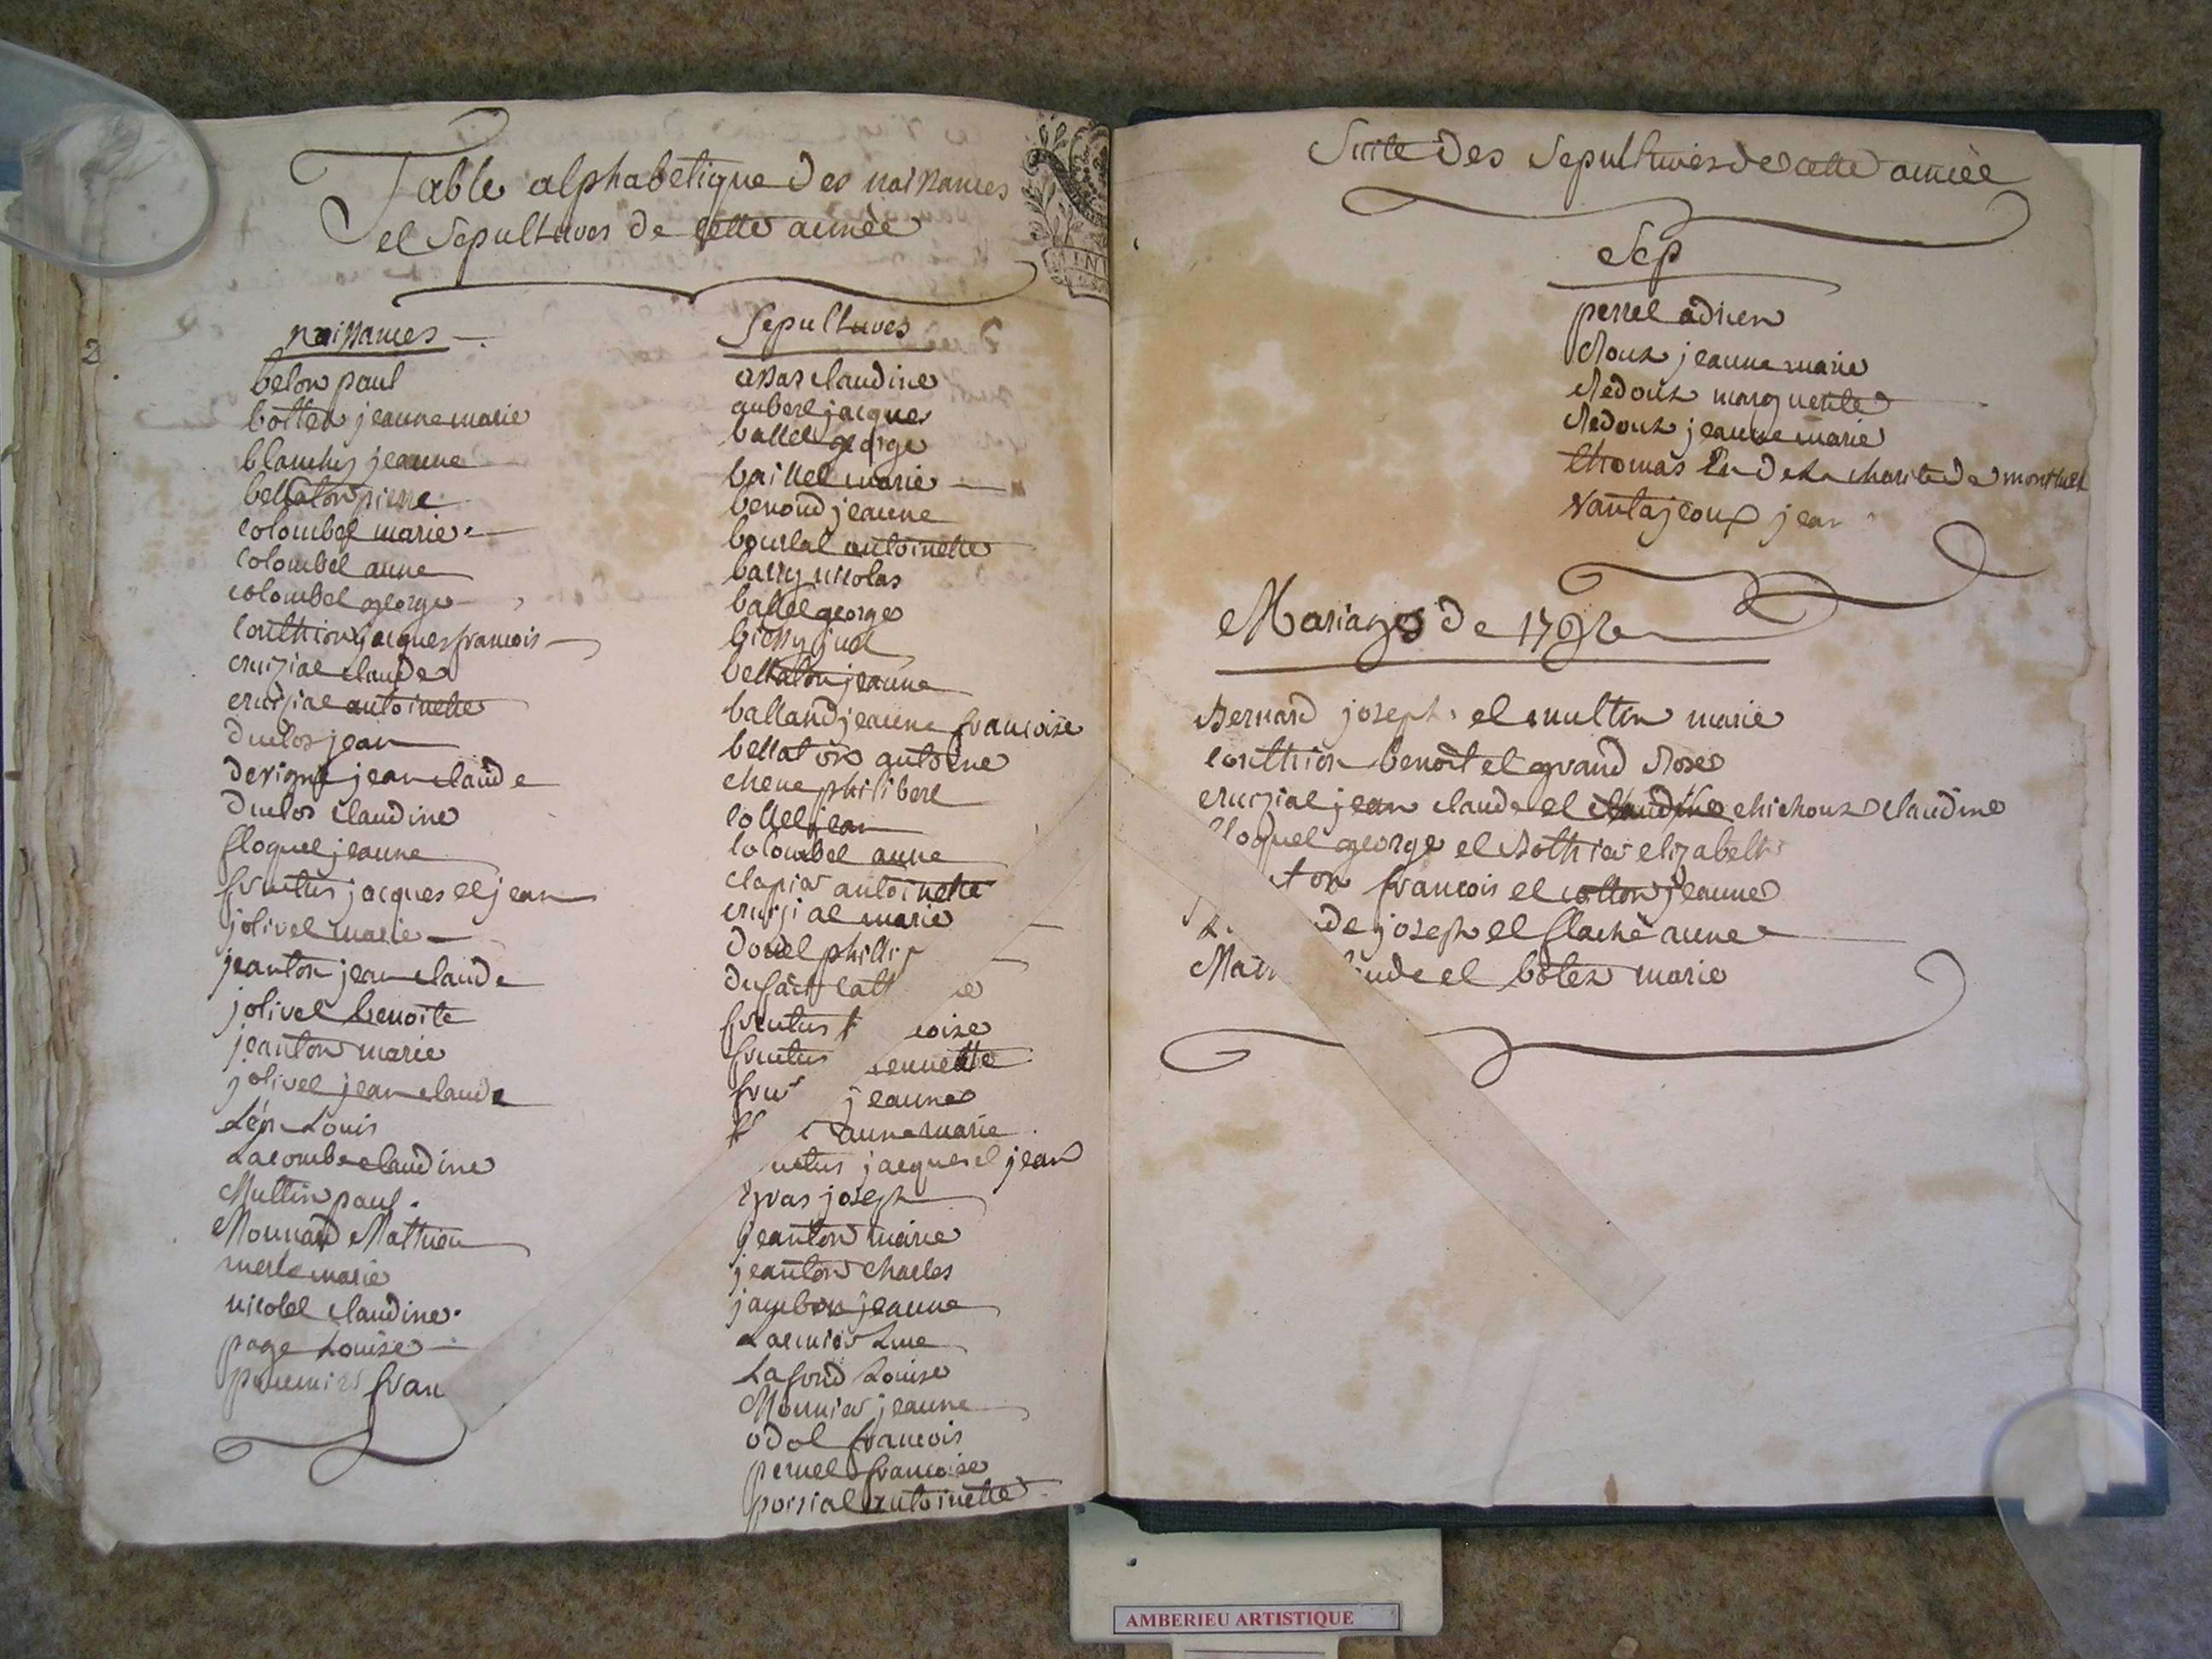 Table alphabetique des naissances
et sepultures de cette année
naissances
belon paul
bottex jeanne marie
blanchy jeanne
bellaton pierre
colombet marie
colombet anne
colombet george
couthion jacques francois
cruizial claude
cruizial antoinette
duclos jean
derigne jean claude
duclos claudine
floquet jeanne
fructus jacques et jean
jolivet marie
jeanton jean claude
jolivet benoite
jeanton marie
jolivet jean claude
Louis
Lacombe claudine
Multin paul
Monnard Mathieu
merle marie
nicolet claudine
page Louise
fran
sepultures
assas claudine
aubert jacque
ballet george
baillet marie
benond jeanne
bourlat antoinette
barry nicolas
ballet george
bichy
bellaton jeanne
balland jeanne francoise
bellaton antoine
chene philibert
collet jean
colombet anne
clapier antoinette
cruizial marie
doriel
dufais
fructus
fructus
jeanne
anne marie
jacques et jean
gras joseph
jeanton marie
jeanton charles
jambon jeanne
Laennier
Lafond Louise
Monnier jeanne
odet francois
perret francoise
porsial antoinette
Suite des sepultures de cette année
Sep
perrel adrien
Roux jeanne marie
Redoux marguerite
Redoux jeanne marie
thomas de La charite de montluel
vantajoux jean
Mariages de 1792
Bernard joseph et multin marie
couthion benoit et grand Rose
cruizial jean claude et claudine chichoux claudine
floquet george et Rothier elizabeth
ton francois et cotton jeanne
de joseph et flache anne
et botex marie
AMBERIEU ARTISTIQUE